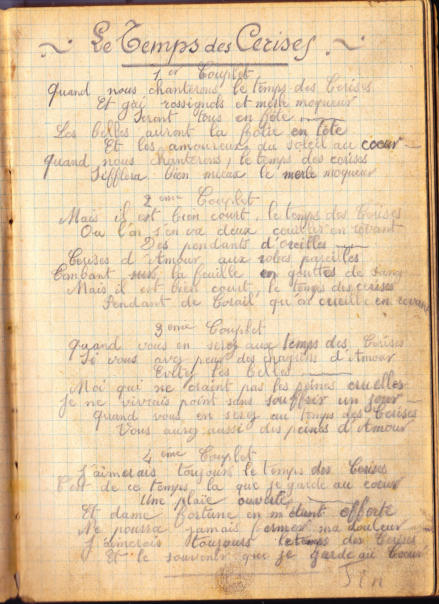 Le Temps des Cerises
1er Couplet
Quand nous chanterons, le temps des Cerises
Et gai rossignols et merle moqueur
Seront tous en fête
Les belles auront la folie en tête
Et les amoureux du soleil au coeur
Quand nous chanterons, le temps des cerises
Sifflera bien mieux le merle moqueur
2eme Couplet
Mais il est bien court, le temps des Cerises
Ou l'on s'en va deux cueillir en rêvant
Des pendants d'oreilles
Cerises d'Amour aux robes pareilles
Tombant sous la feuille en gouttes de sang
Mais il est bien court, le temps des cerises
Pendant de Corail qu'on cueille en rêvant
3eme Couplet
Quand vous en serez aux temps des Cerises
Si vous avez peur des chagrins d'Amour
Evitez les Belles
Moi qui ne craint pas les peines cruelles
Je ne vivrais point sans souffrir un jour
Quand vous en serez au temps des Cerises
Vous aurez aussi des peines d'Amour
4eme Couplet
J'aimerais toujours le temps des Cerises
C'est de ce temps là que je garde au coeur
Une plaie ouverte
Et dame Fortune en m'étant offerte
Ne pourra jamais fermer ma douleur
J'aimerais toujours le temps des Cerises
Et le souvenir que je garde au Coeur
Fin